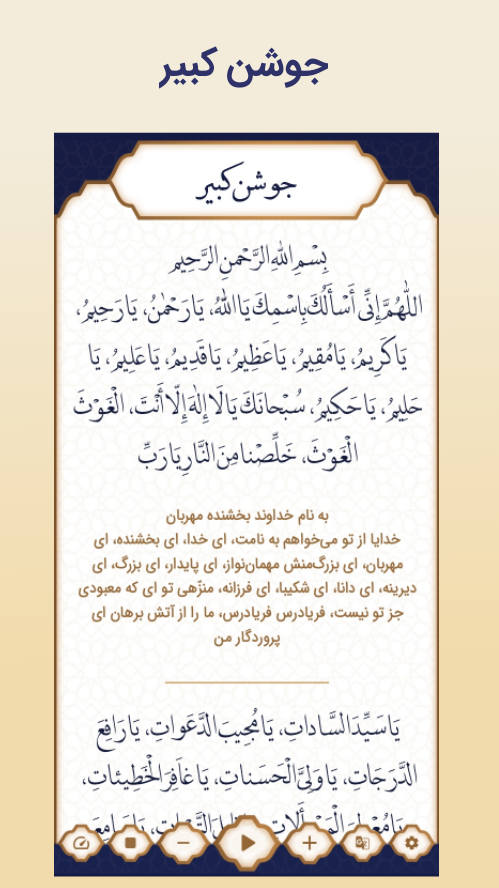 جوشن کبیر
جوشن کبیر
بِسْمِ اللهِ الرَّحْمنِ الرَّحِيمِ
اللَّهُمَّ إِنِّي أَسْأَلُكَ بِاسْمِكَ يَا اللَّهُ، يَا رَحْمٰنُ، يَا رَحِيمُ،
يَا كَرِيمُ، يَا مُقِيمُ، يَا عَظِيمُ، يَا قَدِيمُ، يَا عَلِيمُ، يَا
حَلِيمُ، يَا حَكِيمُ، سُبْحانَكَ يَا لَا إِلٰهَ إِلّا أَنْتَ، الْغَوْثَ
الْغَوْثَ، خَلِّصْنا مِنَ النَّارِ يَا رَبِّ
به نام خداوند بخشنده مهربان
خدایا از تو می‌خواهم به نامت، ای خدا، ای بخشنده، ای
مهربان، ای بزرگ‌منش مهمان‌نواز، ای پایدار، ای بزرگ، ای
دیرینه، ای دانا، ای شکیبا، ای فرزانه، منزّهی تو ای که معبودی
جز تو نیست، فریادرس فریادرس، ما را از آتش برهان ای
پروردگار من
يَا سَيِّدَ السَّاداتِ، يَا مُجِيبَ الدَّعَواتِ، يَا رَافِعَ
الدَّرَجَاتِ، يَا وَلِيَّ الْحَسَناتِ، يَا غَافِرَ الْخَطِيئاتِ،